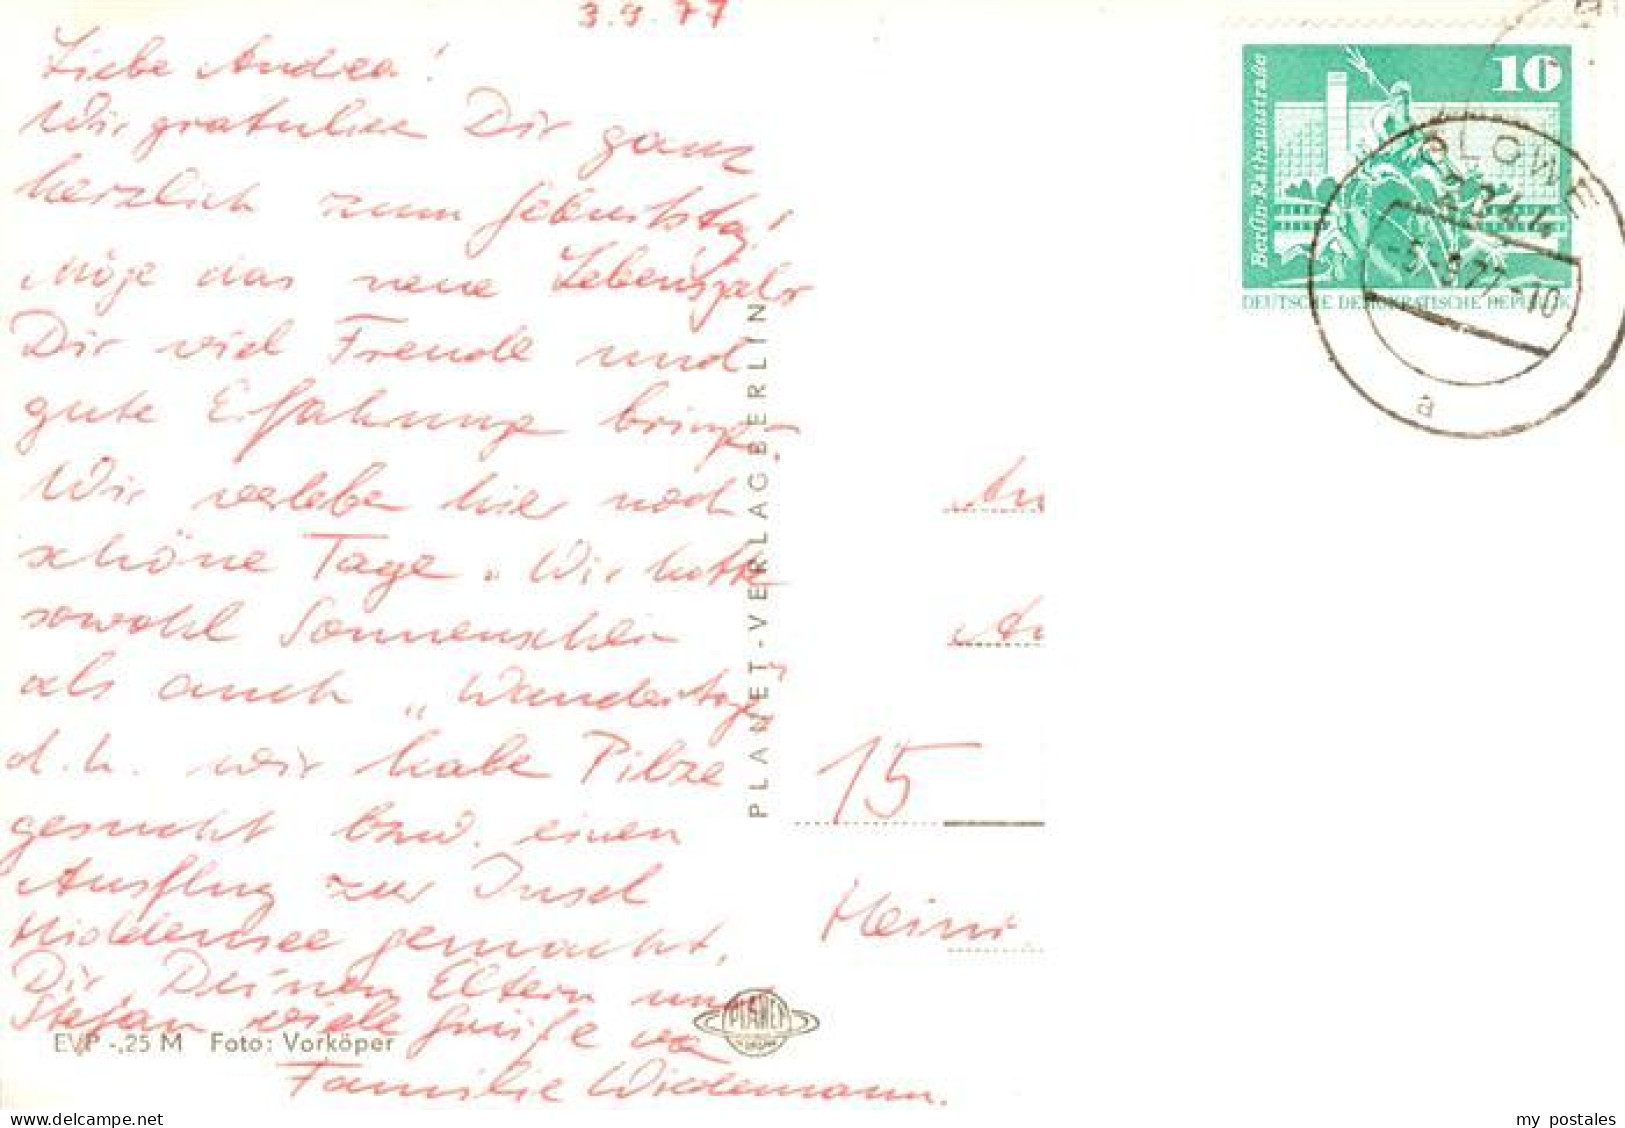 3.9.77
Liebe Andrea!
Wir gratulieren Dir ganz
herzlich zum Geburtstag!
Möge das neue Lebensjahr
Dir viel Freude und
gute Erfahrung bringen.
Wir verleben hier noch
schöne Tage. Wir hatten
sowohl Sonnenschein
als auch „Wandertag"
d.h. wir haben Pilze
gesucht bzw. einen
Ausflug zur Insel
Hiddensee gemacht.
Dir, Deinen Eltern und
Stefan viele Grüße von
Familie Wiedemann.
EVP -,25 M Foto: Vorköper
PLANET-VERLAG BERLIN
PLANET
10
Berlin-Rathausstraße
DEUTSCHE DEMOKRATISCHE REPUBLIK
GLOWE
-5.-9.77-10
a
An
An
15
my postales